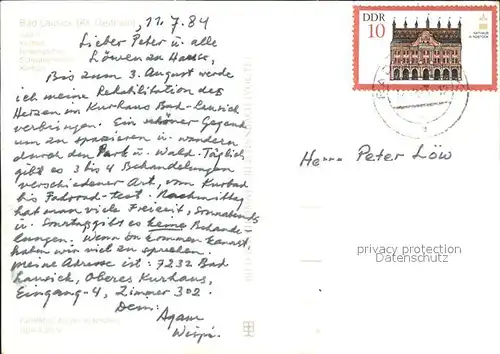 Bad Lausick (Kr. Geithain)
11.7.84
Lieber Peter u. alle
Löwen zu Hause,
Bis zum 3. August werde
ich meine Rehabilitation des
Herzen im Kurhaus Bad-Lausick
verbringen. Ein schöner Gegend
um zu spazieren u. wandern
durch den Park u. Wald. Täglich
gibt es 3 bis 4 Behandelungen
verschiedener Art, vom Kurbad
bis Fahrrad-test. Nachmittag
hat man viel Freizeit, Sonnabends
u. Sonntags gibt es keine Behande-
lungen. Wenn du kommen kannst,
haben wir viel zu sprechen.
meine Adresse ist: 7232 Bad
Lausick, Oberes Kurhaus,
Eingang-4, Zimmer 302.
Dein:
Agam
DDR
10
RATHAUS
IN ROSTOCK
Herrn Peter Löw
privacy protection
Datenschutz